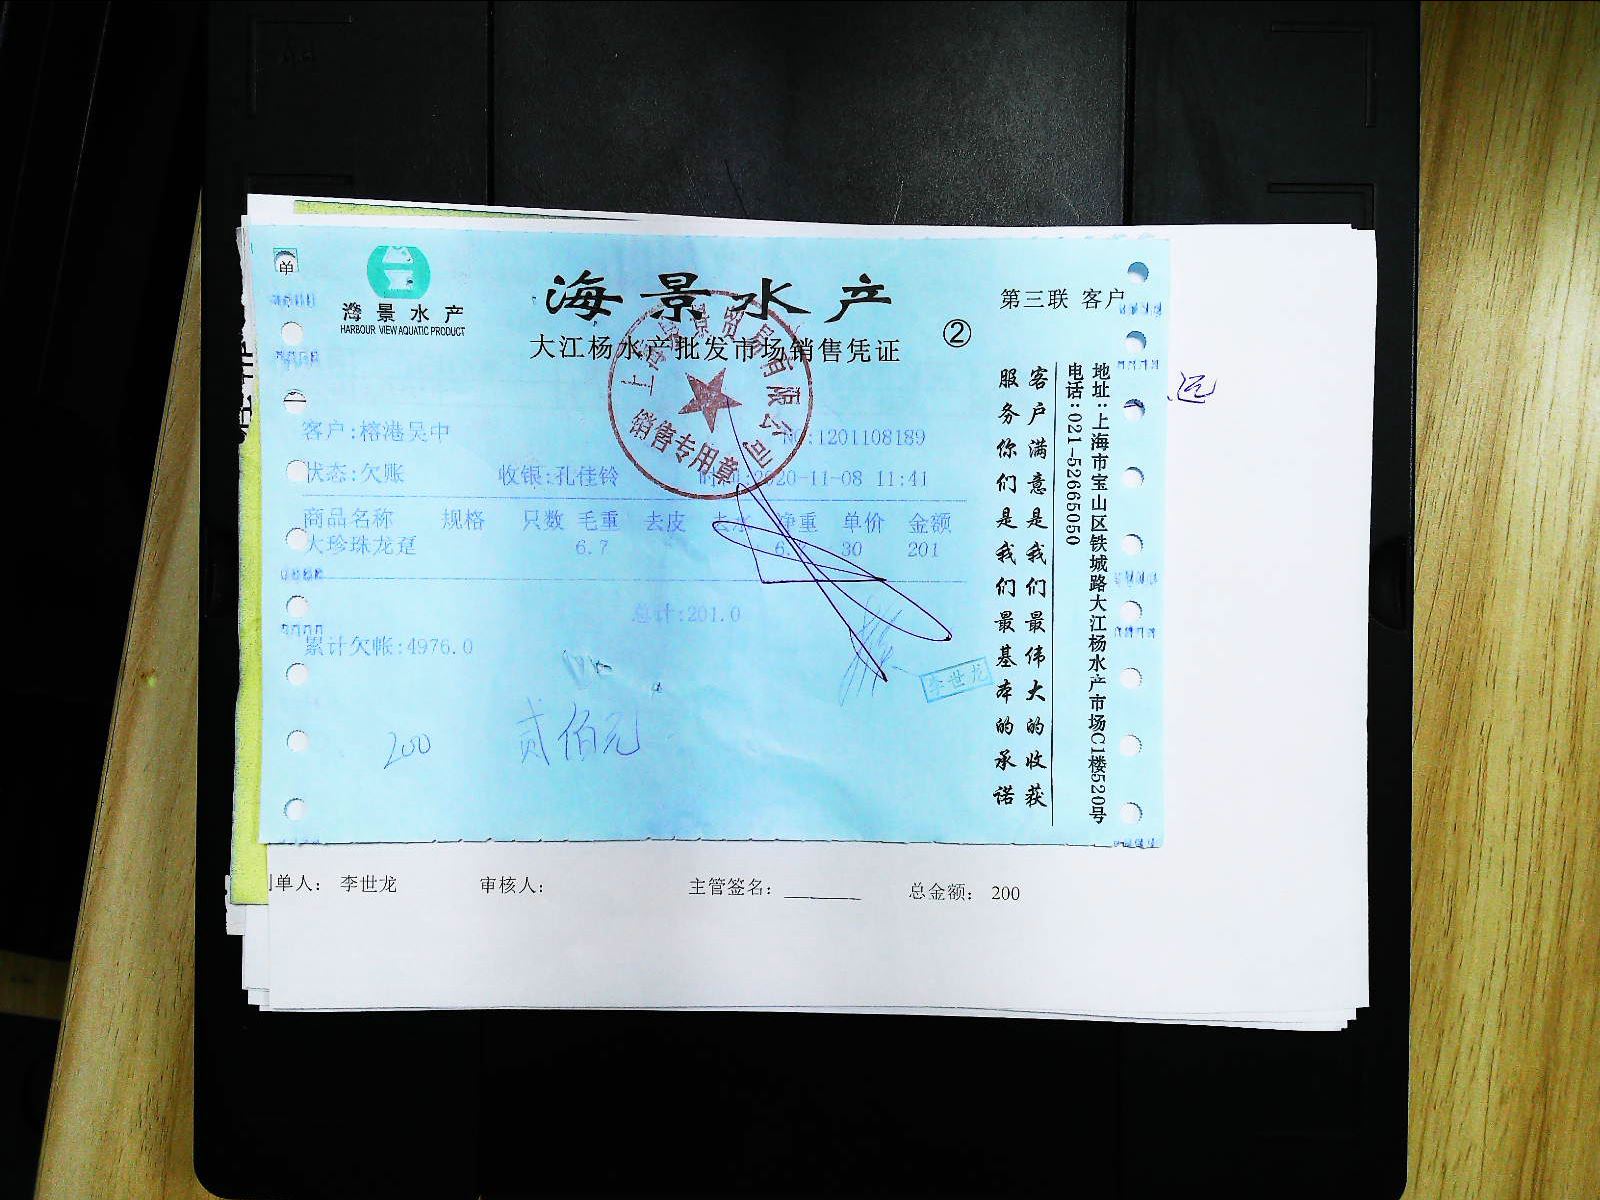 单
海景水产
HARBOUR VIEW AQUATIC PRODUCT
海景水产
大江杨水产批发市场销售凭证
②
第三联 客户
销售专用章
客户:榕港吴中
NO:1201108189
状态:欠账 收银:孔佳铃 时间:2020-11-08 11:41
商品名称 规格 只数 毛重 去皮 去水 净重 单价 金额
大珍珠龙趸 6.7 6. 30 201
总计:201.0
累计欠帐:4976.0
李世龙
200 贰佰元
客户满意是我们最伟大的收获
服务你们是我们最基本的承诺
地址:上海市宝山区铁城路大江杨水产市场C1楼520号
电话:021-52665050
单人: 李世龙 审核人: 主管签名: 总金额: 200